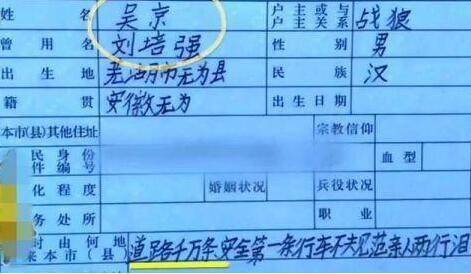 姓名 吴京 户主或与户主关系 战狼
曾用名 刘培强 性别 男
出生地 芜湖市无为县 民族 汉
籍贯 安徽无为 出生日期
本市(县)其他住址 宗教信仰
民身份 件编号 血型
化程度 婚姻状况 兵役状况
务处所
时由何地来本市(县) 道路千万条安全第一条行车不规范亲人两行泪